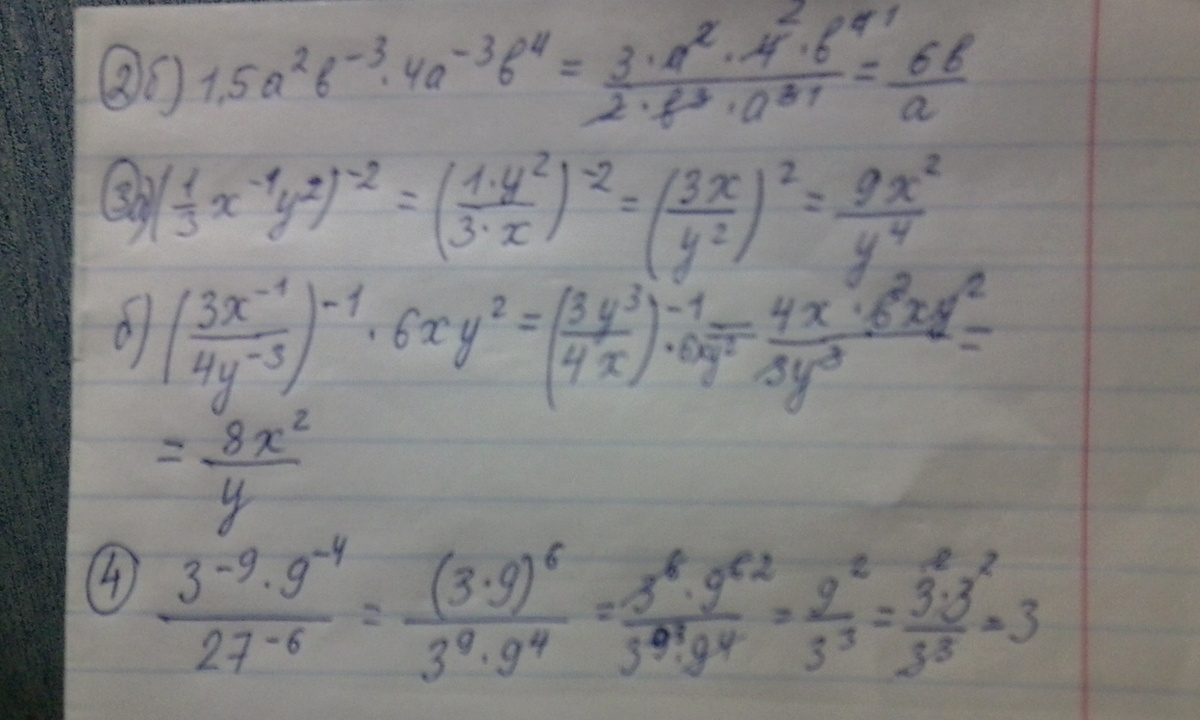 ② б) 1,5a²b⁻³ · 4a⁻³b⁴ = (3 · a² · 4² · b⁴¹)/(2 · b³ · a³¹) = 6b/a
③ а) (1/3 x⁻¹y²)⁻² = ((1 · y²)/(3 · x))⁻² = (3x/y²)² = 9x²/y⁴
б) (3x⁻¹/4y⁻³)⁻¹ · 6xy² = (3y³/4x)⁻¹ · 6xy² = (4x · 6²xy²)/(3y³) =
= 8x²/y
④ (3⁻⁹ · 9⁻⁴)/27⁻⁶ = (3 · 9)⁶/(3⁹ · 9⁴) = (3⁶ · 9⁶²)/(3⁹³ · 9⁴) = 9²/3³ = (3² · 3²)/3³ = 3